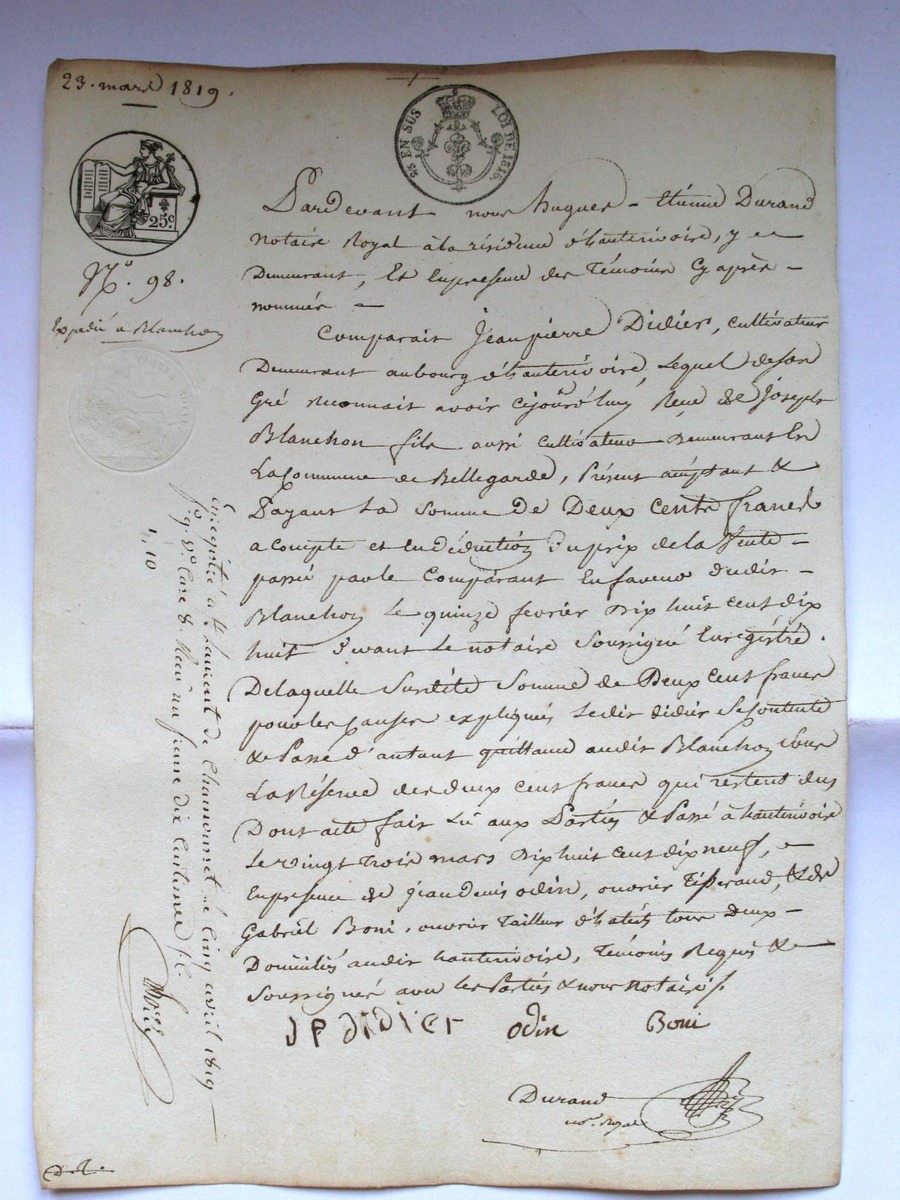 23. mars 1819.
25 EN SUS LOI DE 1816.
25c.
N.o 98.
Expédié a Blanchon
Pardevant nous hugues - Etienne Durand
Notaire Royal à la résidence d'hauterivoire, y en
Demeurant, Et En presence des Témoins Cy après -
nommés -
Comparait Jean pierre Didier, Cultivateur
Demeurant au bourg d'hauterivoire, Lequel de son
Gré reconnait avoir cejourd'huy Reçu de Joseph
Blanchon fils aussi Cultivateur Demeurant En
La Commune de Bellegarde, Présent acceptant &
Payant La Somme de Deux Cents francs
a Compte et en déduction du prix de la Vente -
passé par le Comparant En faveur dudit -
Blanchon le quinze février Dix huit cent dix
huit devant le notaire Soussigné Enregistré.
De laquelle Susdite Somme de Deux cent francs
pour les Causes expliqués Ledit didier Se Contente
& Passe d'autant quittance audit Blanchon Sous
La Réserve des deux cent francs qui restent dus
Dont acte fait Lu aux Parties & Passé à hauterivoire
Le vingt trois mars Dix huit Cent dix neuf, -
En presence de Jean denis odin, ouvrier Tisserand, & de
Gabriel Boni, ouvrier Tailleur d'habits tous deux -
Domiciliés audit hauterivoire, Témoins Requis & -
Soussignés avec les Parties & nous notaire
JP didier odin Boni
Durand
nre. Royal
Enregistré à St. Laurant de Chamousset le cinq avril 1819
fo. 9. Vo. Case 8. Reçu un franc dix Centimes
1, 10